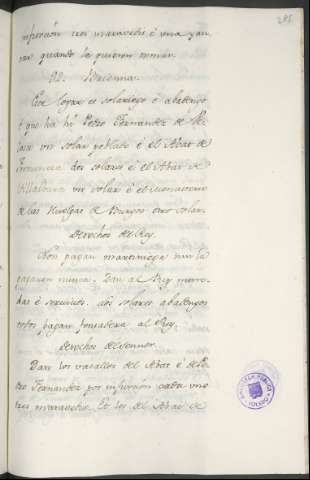 infurción tres maravedis é una yan
tar quando la quieren tomar.
Este logar es solariego é abadengo
é que ha hi Pedro Fernandez de Ve
lasco un solar poblado é el Abat de
dos solares é el Abat de
un solar é el
de las Huelgas de Burgos otro solar.
Derechos del Rey.
Non pagan martiniega nin la
pagaron nunca. Dan al Rey mone
das é servicios. Los solares abadengos
todos pagan fonsadera al Rey.
Derechos del Señor.
Dan los vasallos del Abat é de Pe
dro Fernandez por infurción cada uno
tres maravedis. Et los del Abat de
BIBLIOTECA PUBLICA
TOLEDO